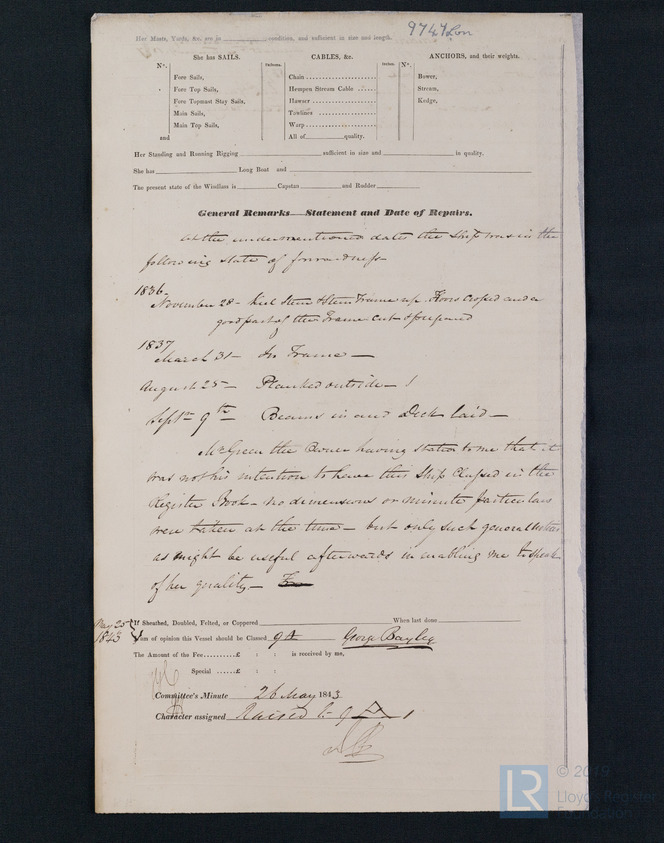 9747 Lon
Her Masts, Yards, &c. are in condition, and sufficient in size and length.
She has SAILS.
CABLES, &c.
ANCHORS, and their weights.
N°.
Fathoms.
Inches.
N°.
Fore Sails,
Chain
Bower,
Fore Top Sails,
Hempen Stream Cable
Stream,
Fore Topmast Stay Sails,
Hawser
Kedge,
Main Sails,
Towlines
Main Top Sails,
Warp
and
All of quality.
Her Standing and Running Rigging sufficient in size and in quality.
She has Long Boat and
The present state of the Windlass is Capstan and Rudder
General Remarks—Statement and Date of Repairs.
At the undermentioned dates the Ship was in the
following state of forwardness
1836-
November 28- Keel Stem & Stern Frame up Floors Crossed and a
good part of the Frame Cut & prepared
1837
March 31- In Frame —
August 25- Planked outside -
Sept 9th Beams in and Deck laid —
Mr Green the Owner having stated to me that it
was not his intention to have this Ship Classed in the
Register Book - no dimensions or minute particulars
were taken at the time - but only such general notes
as might be useful afterwards in enabling me to speak
of her quality -
If Sheathed, Doubled, Felted, or Coppered When last done
May 25th
1843
I am of opinion this Vessel should be Classed 9A George Bayley
The Amount of the Fee £ : : is received by me,
Special £ : :
Committee's Minute 26 May 1843.
Character assigned Raised to 9 A 1
LR
© 2019
Lloyd's Register
Foundation